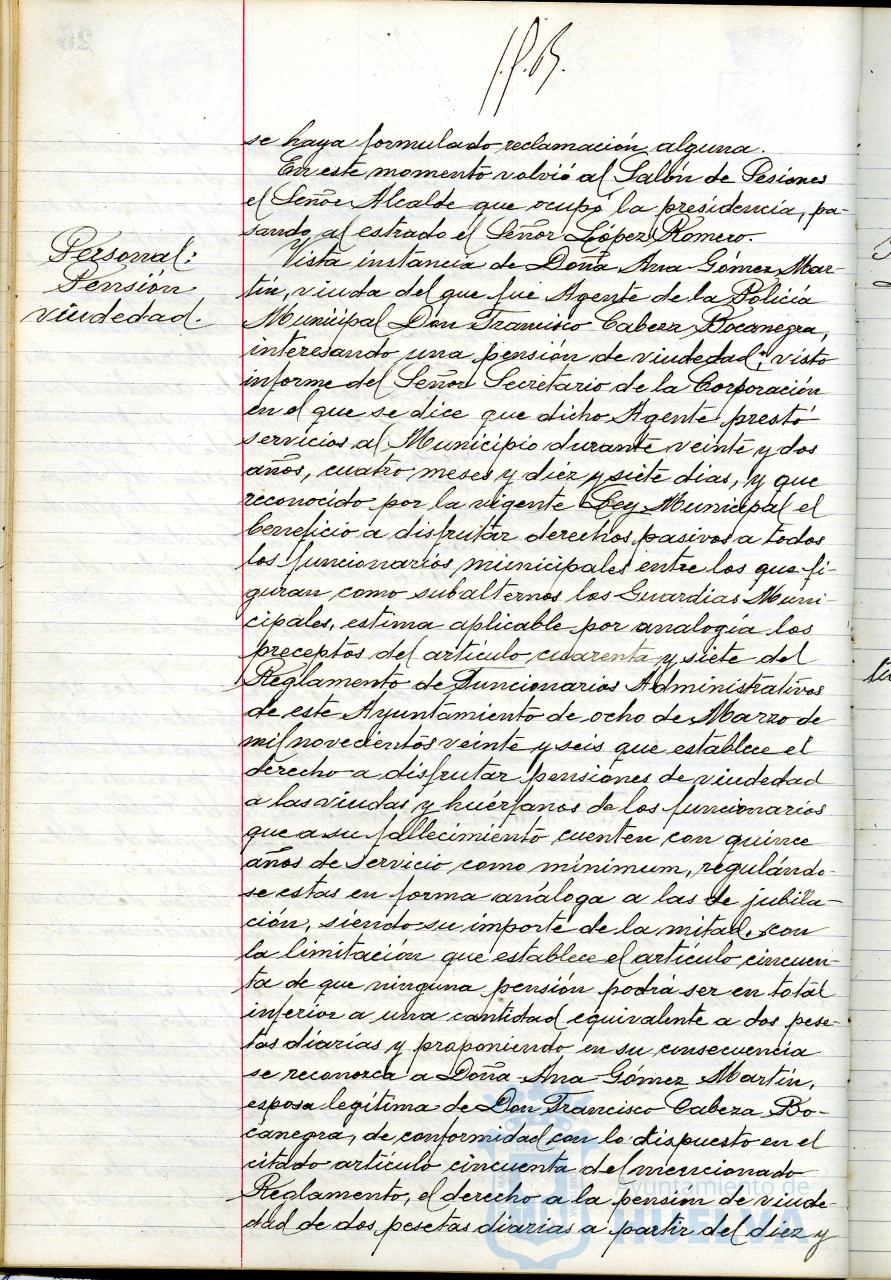 se haya formulado reclamación alguna.
En este momento volvió al Salón de Sesiones
el Señor Alcalde que ocupó la presidencia, pa-
sando al estrado el Señor López Romero.
Personal:
Pensión
viudedad.
Vista instancia de Doña Ana Gómez Mar-
tín, viuda del que fue Agente de la Policía
Municipal Don Francisco Cabeza Bocanegra,
interesando una pensión de viudedad; visto
informe del Señor Secretario de la Corporación
en el que se dice que dicho Agente prestó
servicios al Municipio durante veinte y dos
años, cuatro meses y diez y siete dias, y que
reconocido por la vigente Ley Municipal el
beneficio a disfrutar derechos pasivos a todos
los funcionarios municipales entre los que fi-
guran como subalternos los Guardias Muni-
cipales, estima aplicable por analogía los
preceptos del artículo cuarenta y siete del
Reglamento de Funcionarios Administrativos
de este Ayuntamiento de ocho de Marzo de
mil novecientos veinte y seis que establece el
derecho a disfrutar pensiones de viudedad
a las viudas y huérfanos de los funcionarios
que a su fallecimiento cuenten con quince
años de servicio como minimum, regulándo-
se estas en forma análoga a las de jubila-
ción, siendo su importe de la mitad, con
la limitación que establece el artículo cincuen-
ta de que ninguna pensión podrá ser en total
inferior a una cantidad equivalente a dos pese-
tas diarias y proponiendo en su consecuencia
se reconozca a Doña Ana Gómez Martín,
esposa legítima de Don Francisco Cabeza Bo-
canegra, de conformidad con lo dispuesto en el
citado artículo cincuenta del mencionado
Reglamento, el derecho a la pensión de viude-
dad de dos pesetas diarias a partir del diez y
Ayuntamiento de
HUELVA